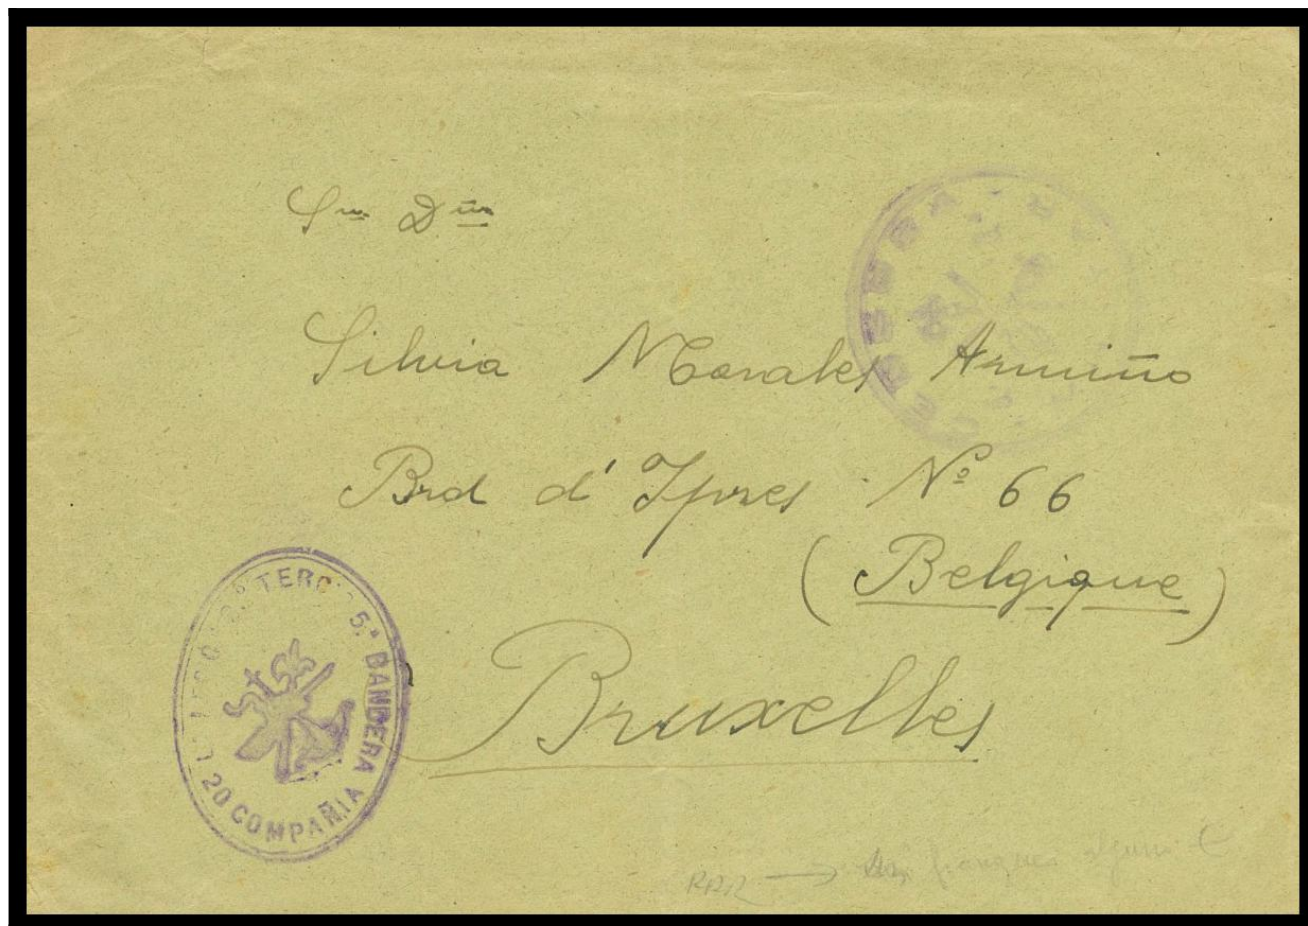 Sra Dña
Silvia Morales Armiño
Brd d' Ypres Nº 66
(Belgique)
Bruxelles
TERCIO 5.ª BANDERA
20 COMPAÑIA
RRR → franqueo alguno